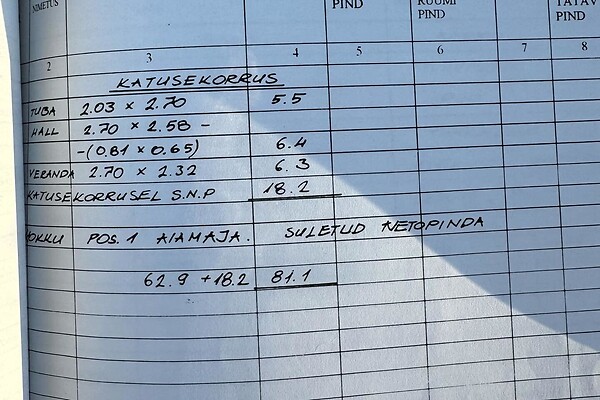 NIMETUS PIND RUUMI PIND PIND
2 3 4 5 6 7 8
KATUSEKORRUS
TUBA 2.03 × 2.70 5.5
HALL 2.70 × 2.58 -
-(0.81 × 0.65) 6.4
VERANDA 2.70 × 2.32 6.3
KATUSEKORRUSEL S.N.P 18.2
KOKKU POS. 1 AIAMAJA. SULETUD NETOPINDA
62.9 +18.2 81.1